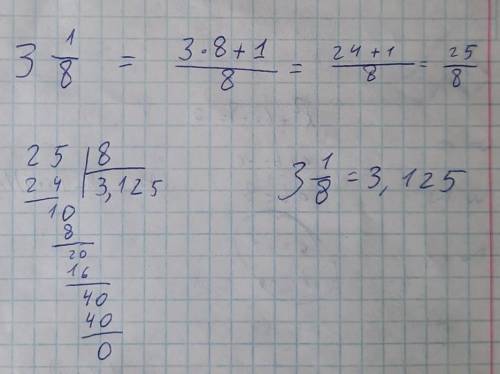 3 1/8 = (3·8+1)/8 = (24+1)/8 = 25/8
25 | 8
24 | 3,125
10
8
20
16
40
40
0
3 1/8 = 3,125